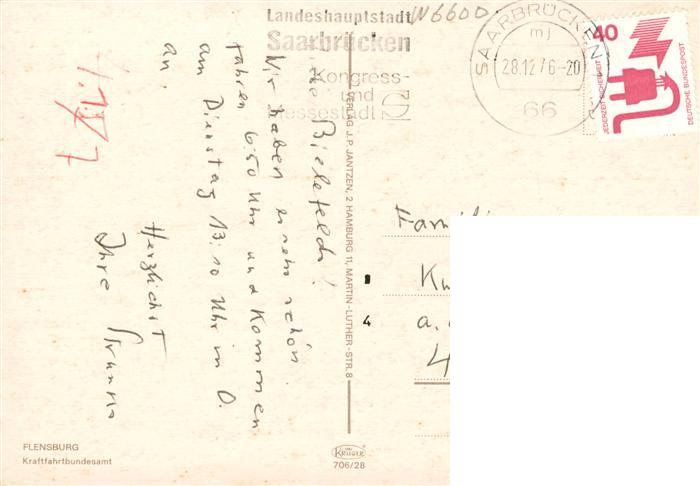 Landeshauptstadt
Saarbrücken
Kongress-
und
Messestadt
W6600
SAARBRÜCKEN
mj
28.12.76-20
66
40
JEDERZEIT SICHERHEIT
DEUTSCHE BUNDESPOST
Bielefelds!
Wir haben schön
fahren 6:50 Uhr und kommen
am Dienstag 13:10 Uhr in D.
an.
Herzlichst
Ihre
VERLAG J.P. JANTZEN, 2 HAMBURG 11, MARTIN-LUTHER-STR. 8
Fam
a.
4
FLENSBURG
Kraftfahrtbundesamt
KRÜGER
706/28